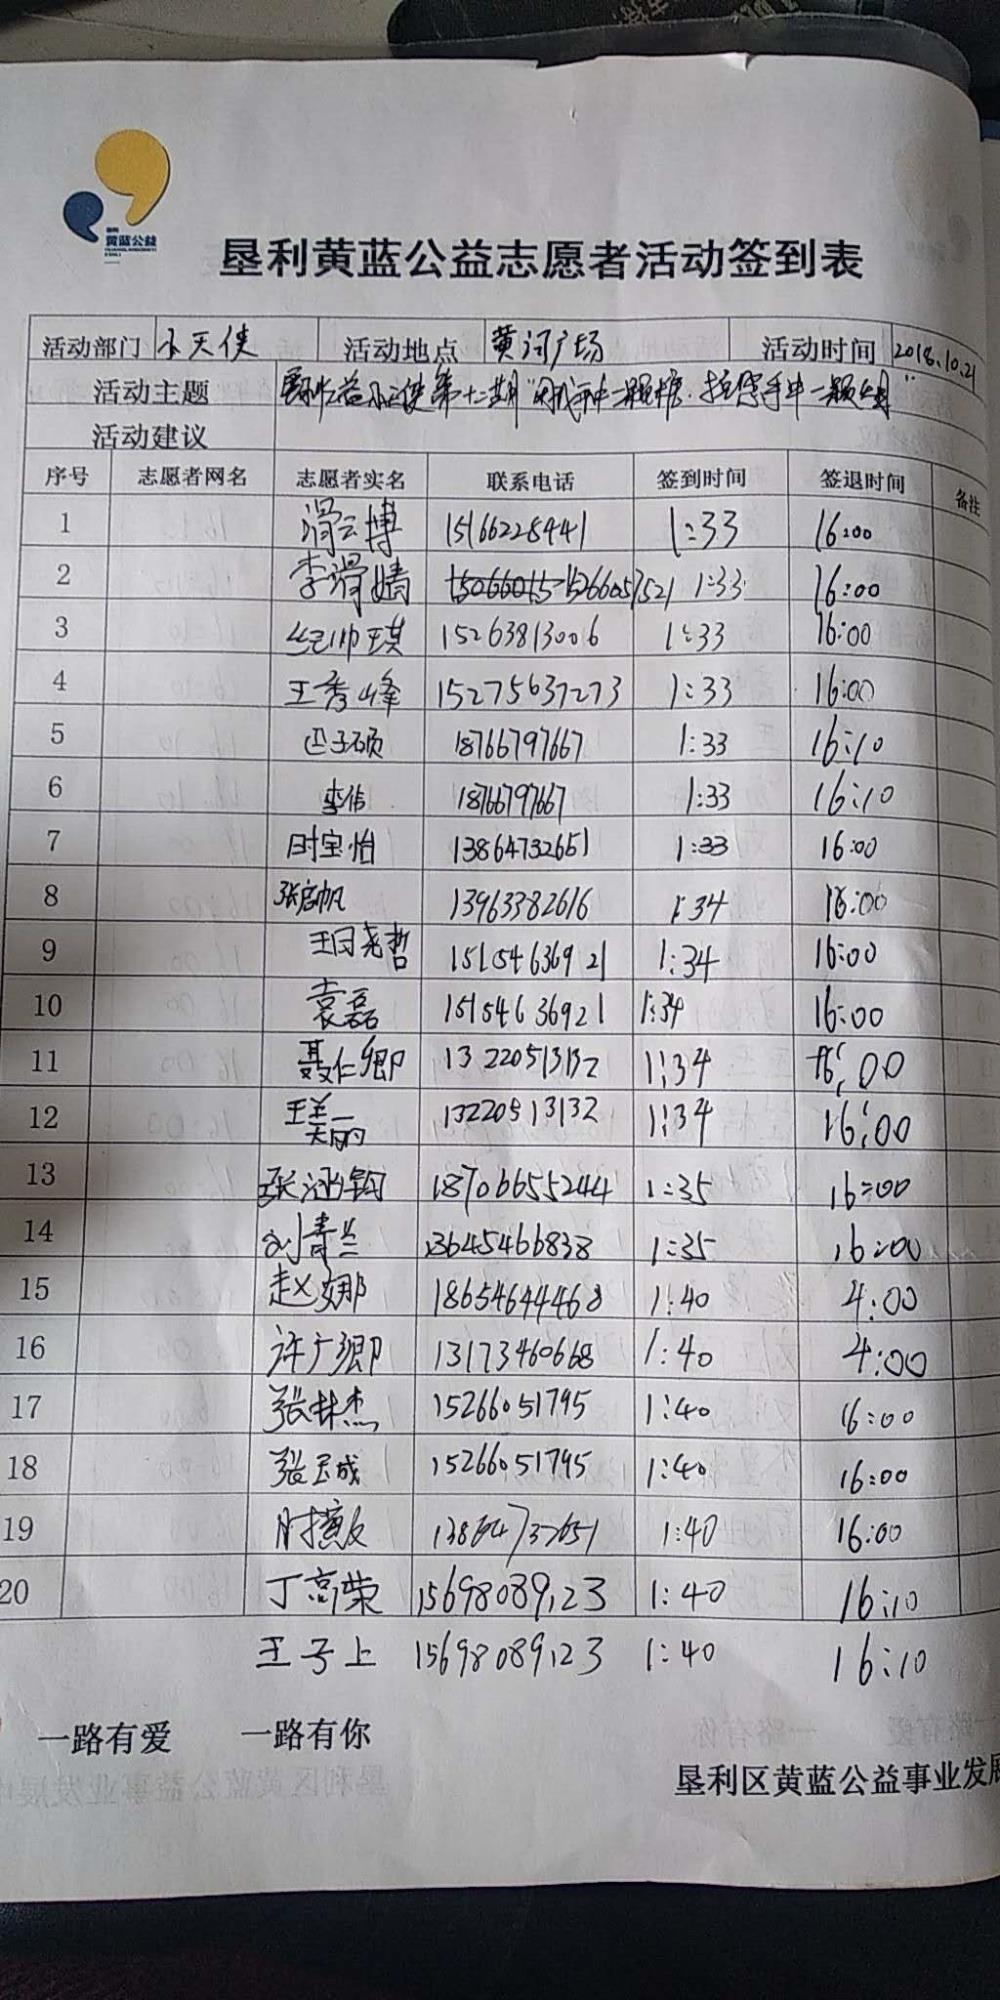 黄蓝公益
垦利黄蓝公益志愿者活动签到表
活动部门 小天使 活动地点 黄河广场 活动时间 2018.10.21
活动主题 第十二期
活动建议
序号 志愿者网名 志愿者实名 联系电话 签到时间 签退时间 备注
1 滑云博 15166228441 1:33 16:00
2 李滑婧 1:33 16:00
3 纪帅琪 15263813006 1:33 16:00
4 王秀峰 15275637273 1:33 16:00
5 子硕 18766797667 1:33 16:10
6 李倩 18766797667 1:33 16:10
7 时宝怡 13864732651 1:33 16:00
8 张启帆 13963382616 1:34 16:00
9 王尧哲 15154636921 1:34 16:00
10 袁磊 15154636921 1:34 16:00
11 聂仁卿 13220513132 1:34 16:00
12 王美丽 13220513132 1:34 16:00
13 张涵钧 18706655244 1:35 16:00
14 刘青兰 13645466838 1:35 16:00
15 赵娜 18654644468 1:40 4:00
16 许广卿 13173460668 1:40 4:00
17 张林杰 15266051795 1:40 16:00
18 张玉成 15266051795 1:40 16:00
19 13864732651 1:40 16:00
20 丁高荣 15698089123 1:40 16:10
王子上 15698089123 1:40 16:10
一路有爱 一路有你
垦利区黄蓝公益事业发展